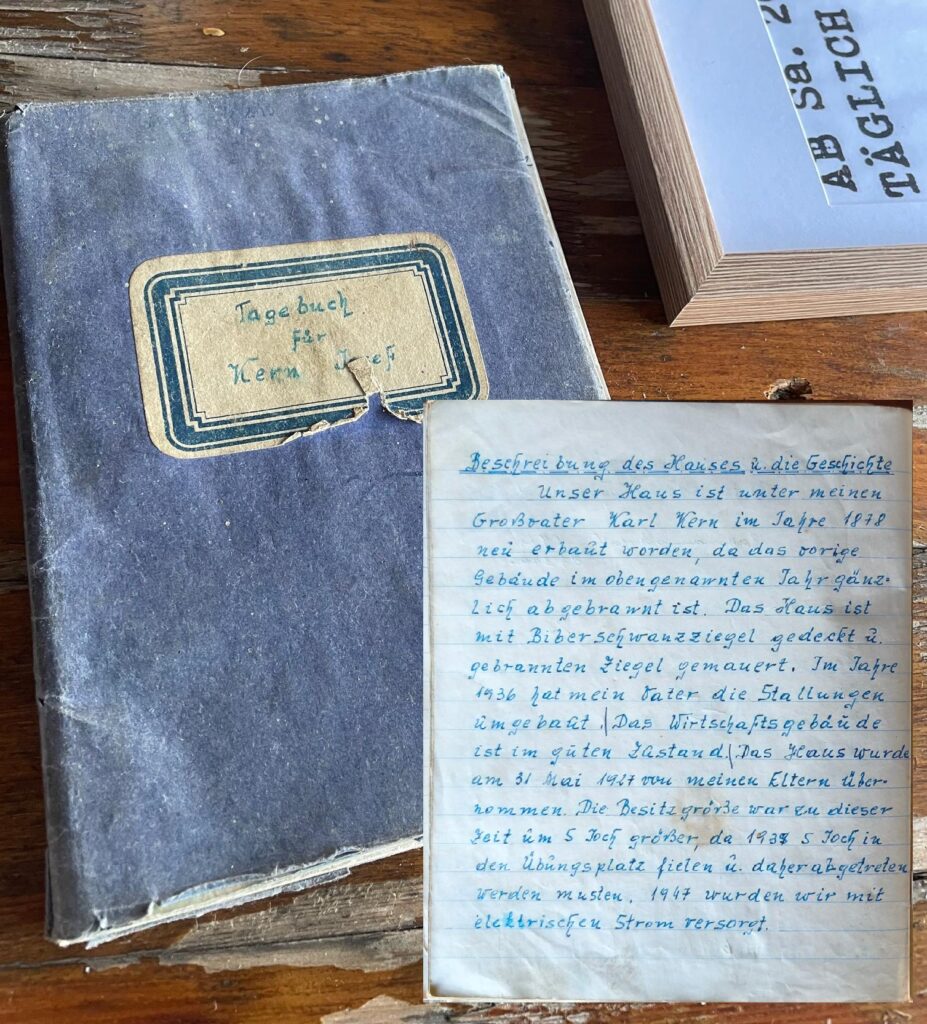 Tagebuch
für
Kern Josef
AB Sa. 2
TÄGLICH
Beschreibung des Hauses u. die Geschichte
Unser Haus ist unter meinen
Großvater Karl Kern im Jahre 1878
neu erbaut worden, da das vorige
Gebäude im obengenannten Jahr gänz-
lich abgebrannt ist. Das Haus ist
mit Biberschwanzziegel gedeckt u.
gebrannten Ziegel gemauert. Im Jahre
1936 hat mein Vater die Stallungen
umgebaut. Das Wirtschaftsgebäude
ist im guten Zustand. Das Haus wurde
am 31 Mai 1927 von meinen Eltern über-
nommen. Die Besitzgröße war zu dieser
Zeit um 5 Joch größer, da 5 Joch in
den Übungsplatz fielen u. daher abgetreten
werden musten. 1947 wurden wir mit
elektrischen Strom versorgt.